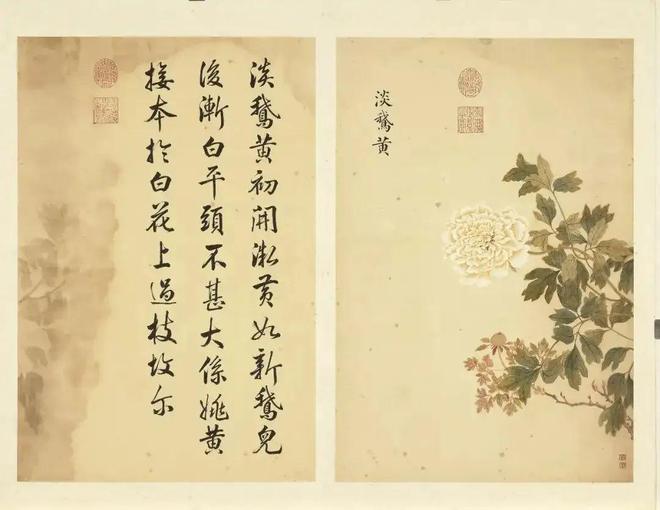 淡鵞黃
淡鵞黃初開微黃如新鵞兒
後漸白平頭不甚大係姚黃
接本於白花上過枝故尔